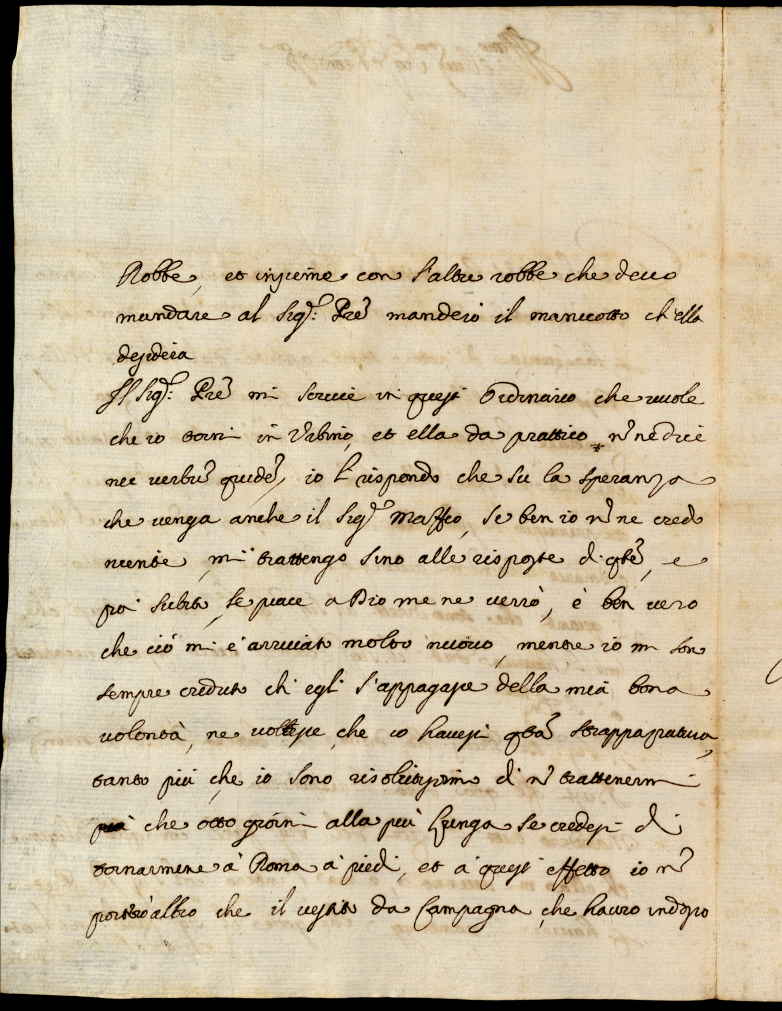 Robbe, et insieme con l'altre robbe che devo
mandare al Sig.r Pre manderò il manicotto ch'ella
desidera
Il Sig.r Pre mi scrive in quest'Ordinario che vuole
che io torni in Urbino, et ella da prattico n ne dice
nec verbũ quidẽ, io li rispondo che su la speranza
che venga anche il Sig.r Maffeo, se ben io n ne credo
niente, mi trattengo sino alle risposte di qta, e
poi subito, se piace a Dio me ne verrò, è ben vero
che ciò mi è arrivato molto nuovo, mentre io mi son
sempre creduto ch'egli s'appagasse della mia bona
volontà, ne volesse che io havessi qta strappazzatura,
tanto più che io sono risolutissimo di n trattenermi
più che otto giorni alla più lunga se credessi di
tornarmene à Roma à piedi, et à quest'effetto io n
porterò altro che il vestito da Campagna, che havrò indosso